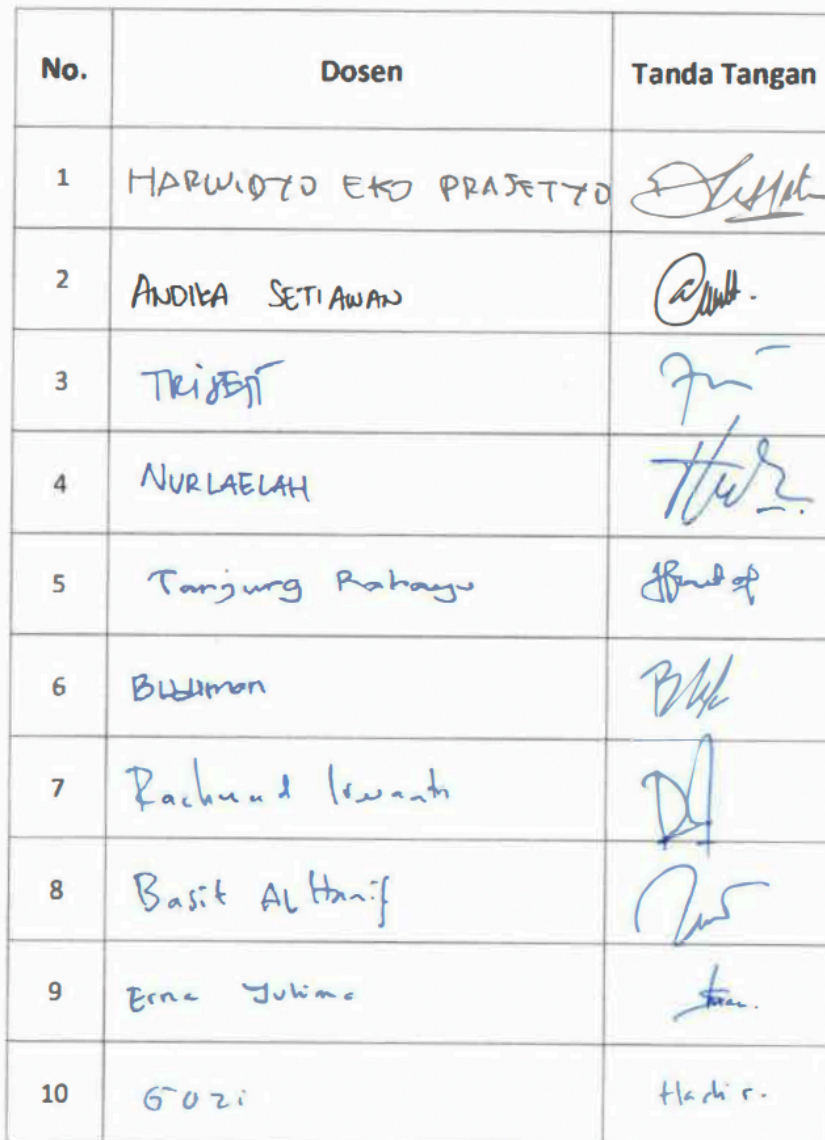 No. Dosen Tanda Tangan
1 HARWIDYO EKO PRASETYO
2 ANDIKA SETIAWAN
3
4 NURLAELAH
5 Tanjung Rahayu
6 Budiman
7 Rachmad Irwanto
8 Basit AL Hanif
9 Erna Yulima
10 Gozi Hadir.